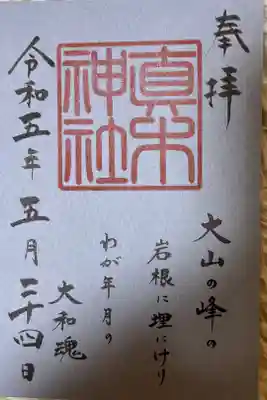 奉拝
真木
神社
大山の峰の
岩根に埋にけり
わが年月の
大和魂
令和五年五月二十四日